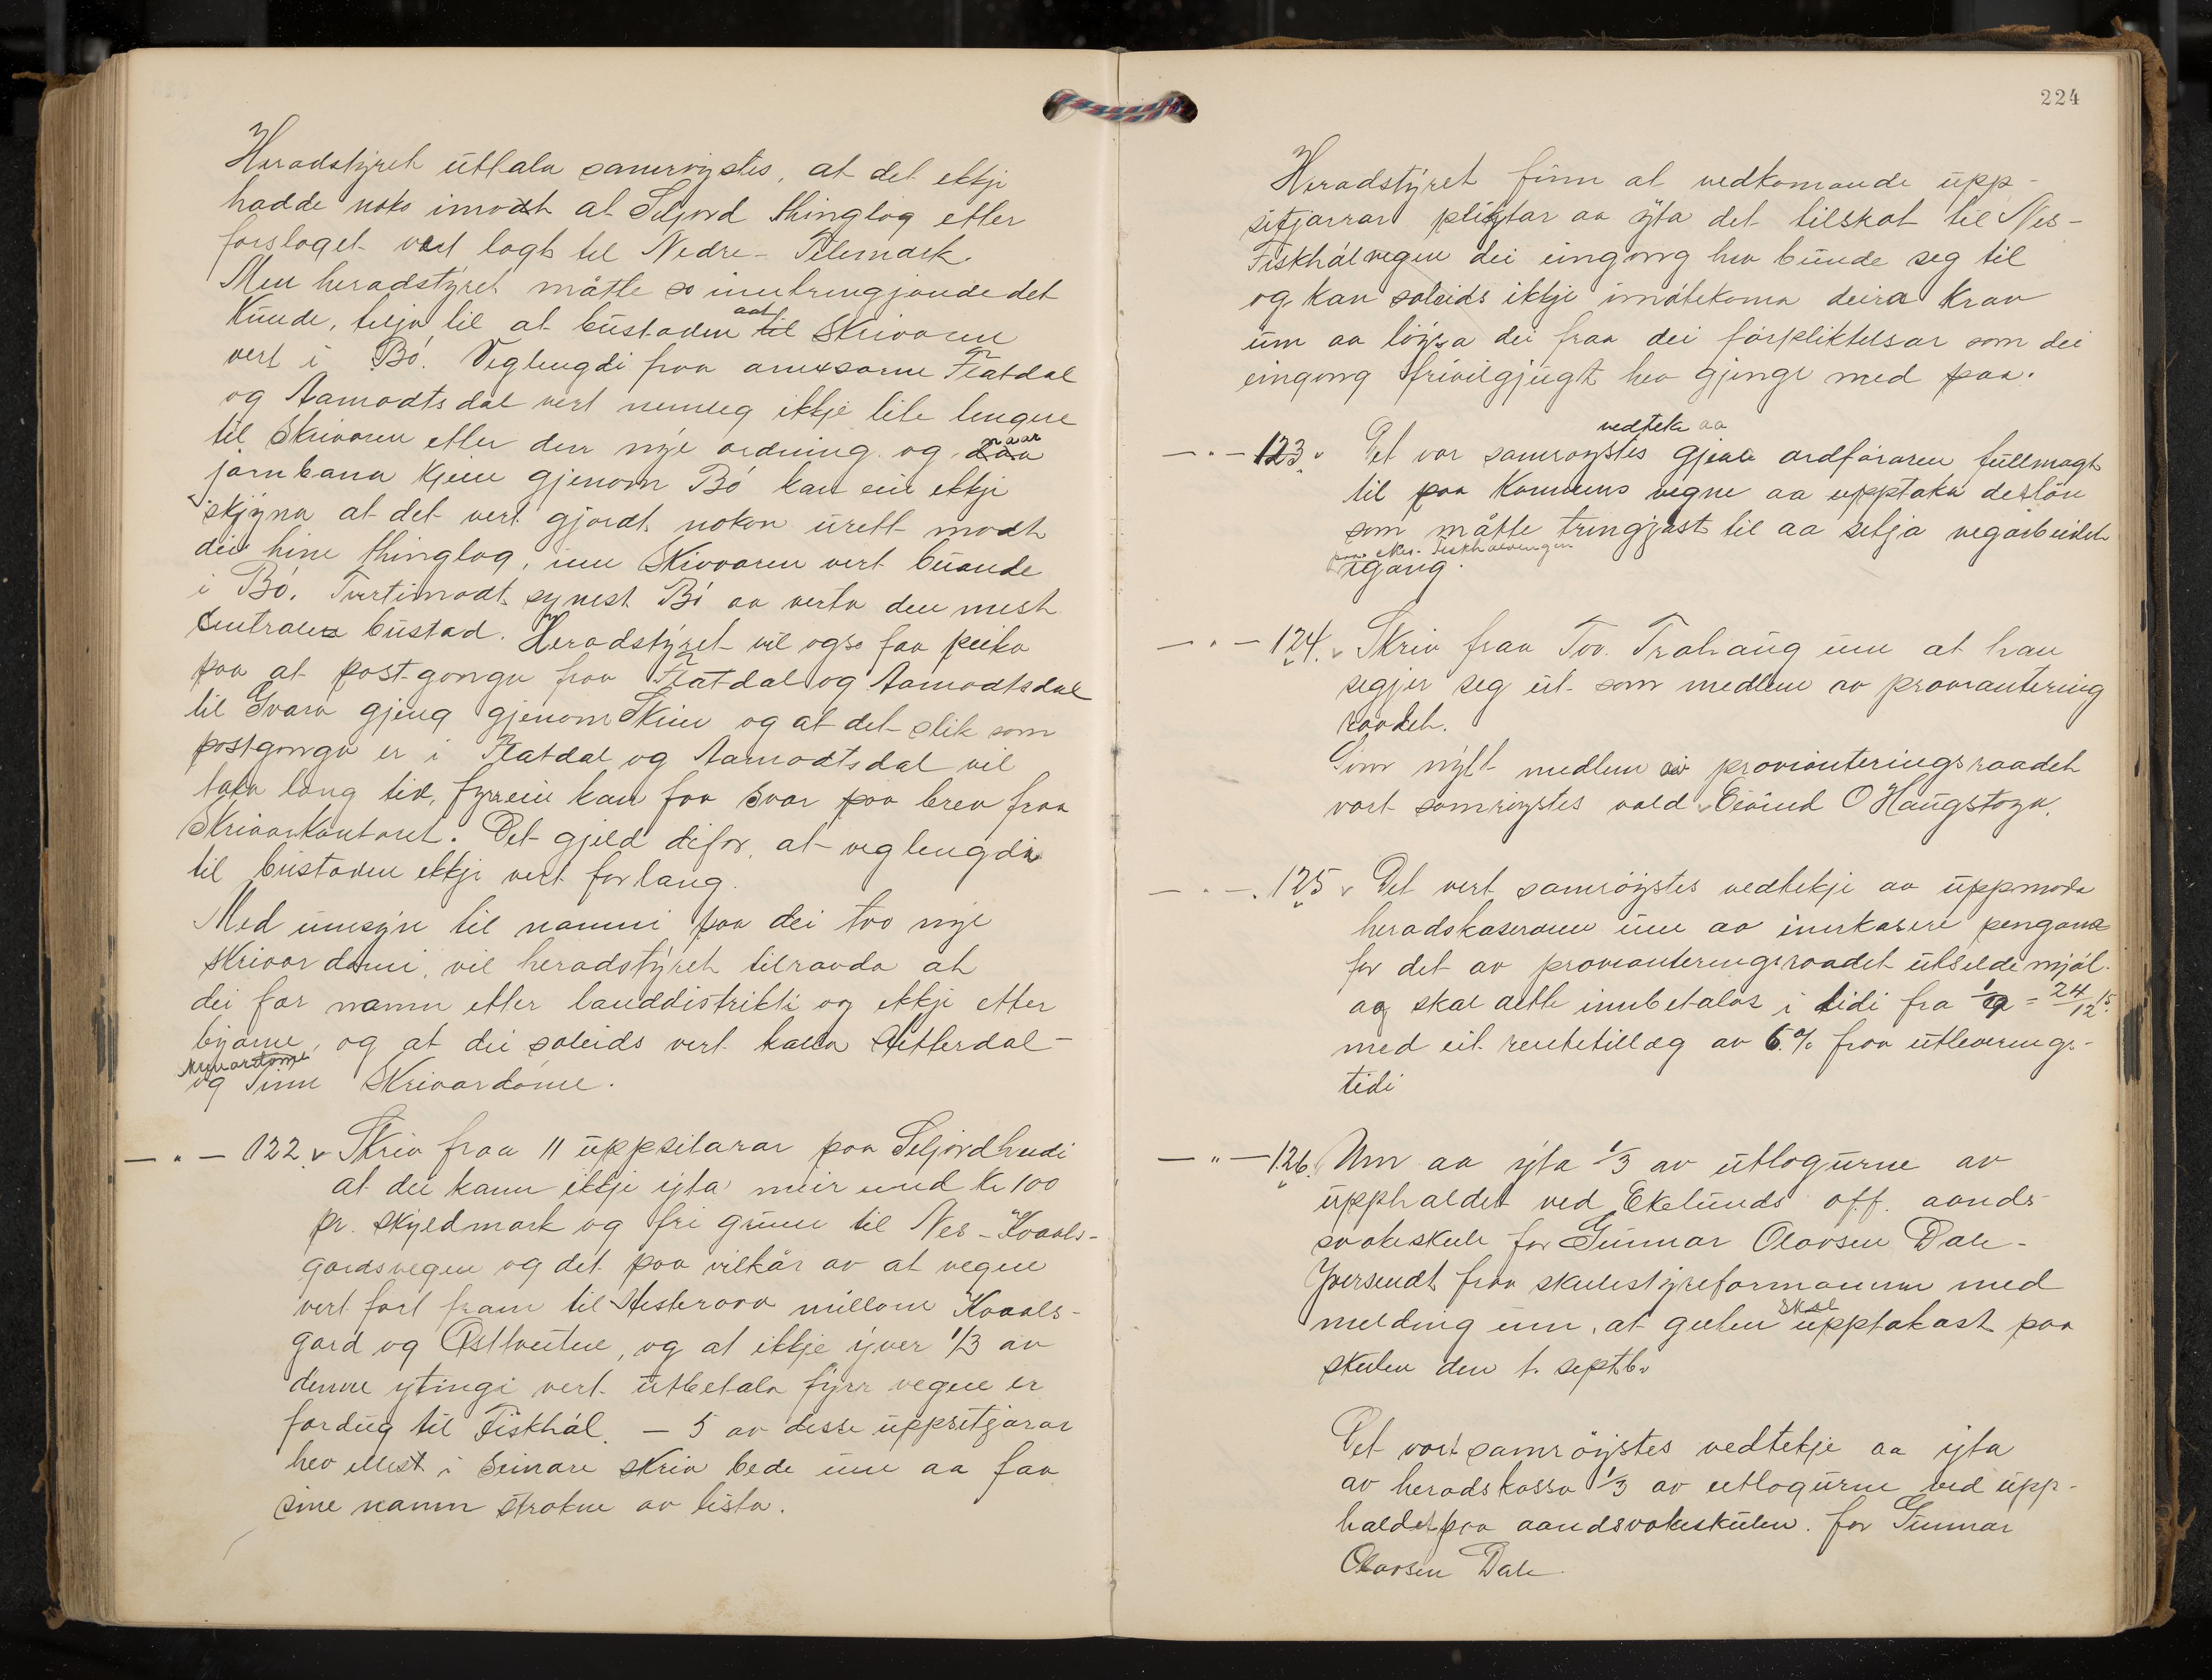 Heradstyret uttala samrøystes, at det ekkje
hadde noko imodt at Seljord thinglag etter
forslaget vert lagt til Nedre-Telemark.
Men heradstyret måtte so inntrengjande det
kunde, telja til at bustaden aat til Skrivaren
vert i Bö. Veglengdi fraa anexsarne Flatdal
og Aamodtsdal vert nemleg ikkje lite lengre
til Skrivaren etter den nye ordning og naar
jarnbana kjem gjenom Bö kan ein ekkje
skjyna at det vert gjordt nokon urett modt
dei hine thinglag, um Skrivaren vert buande
i Bö. Tvertimodt synest Bö aa verta den mest
centrale bustad. Heradstyret vil ogso faa peika
paa at postgonga fraa Flatdal og Aamodtsdal
til Gvara gjeng gjenom Skien og at det slik som
postgonga er i Flatdal og Aamodtsdal vil
taka lang tid, fyrr ein kan faa svar paa brev fraa
Skrivarkontoret. Det gjeld difor, at veglengdi
til bustaden ekkje vert for lang.
Med umsyn til namni paa dei tvo nye
skrivardømi, vil heradstyret tilraada at
dei far namn etter landdistrikti og ekkje etter
byarne, og at dei soleids vert kalla Hitterdal-
skrivardöme
og Tinn Skrivardöme.
— " — 122. Skriv fraa 11 uppsitarar paa Seljordheidi
at dei kann ikkje yta meir end kr 100
pr. skyldmark og fri grunn til Nes-Kvaals-
gardsvegen og det paa vilkår av at vegen
vert fört fram til Hesteraaa millom Kvaals-
gard og Østtveitene, og at ikkje yver 1/3 av
denne ytingi vert utbetala fyrr vegen er
ferdug til Fiskhål. — 5 av desse uppsitjarar
hev ellest i seinare skriv bede um aa faa
sine namn strokne av lista.
224
Heradstyret finn at vedkomande upp-
sitjarar pligtar aa yta det tilskot til Nes-
Fiskhålvegen dei eingong hev bunde seg til
og kan soleids ikkje imötekoma deira krav
um aa löysa dei fraa dei forpliktelsar som dei
eingong friviljugt hev gjenge med paa.
vedteke aa
— " — 123. Det var samrøystes gjeva ordføraren fullmagt
til paa kommuns vegne aa upptaka det lön
som måtte trengjast til aa setja vegarbeidet
paa Nes-Fiskhaalvegen
igang.
— " — 124. Skriv fraa Tov. Trahaug um at han
segjer seg ut som medlem av proviantering
raadet.
Som nytt medlem av provianteringsraadet
vart samröystes vald Eivind O Haugstoga.
— " — 125. Det vert samröystes vedtekje aa uppmoda
heradskaseraren um aa innkasere pengane
for det av provianteringsraadet utselde mjöl.
og skal dette innbetalas i tidi fra 1/9 = 24/12 15.
med eit rentetillæg av 6 % fraa utleverings-
tidi
— " — 126. Um aa yta 1/3 av utlogurne av
uppheldet ved Ekelunds off. aands-
svakeskule for Gunnar Olavsen Dale-
Yversendt fraa skulestyreformannen med
melding um, at guten skal upptakast paa
skulen den 1. septbr.
Det vart samröystes vedtekje aa yta
av heradskassa 1/3 av utlogurne ved upp-
haldet paa aandsvakeskulen. for Gunnar
Olavsen Dale